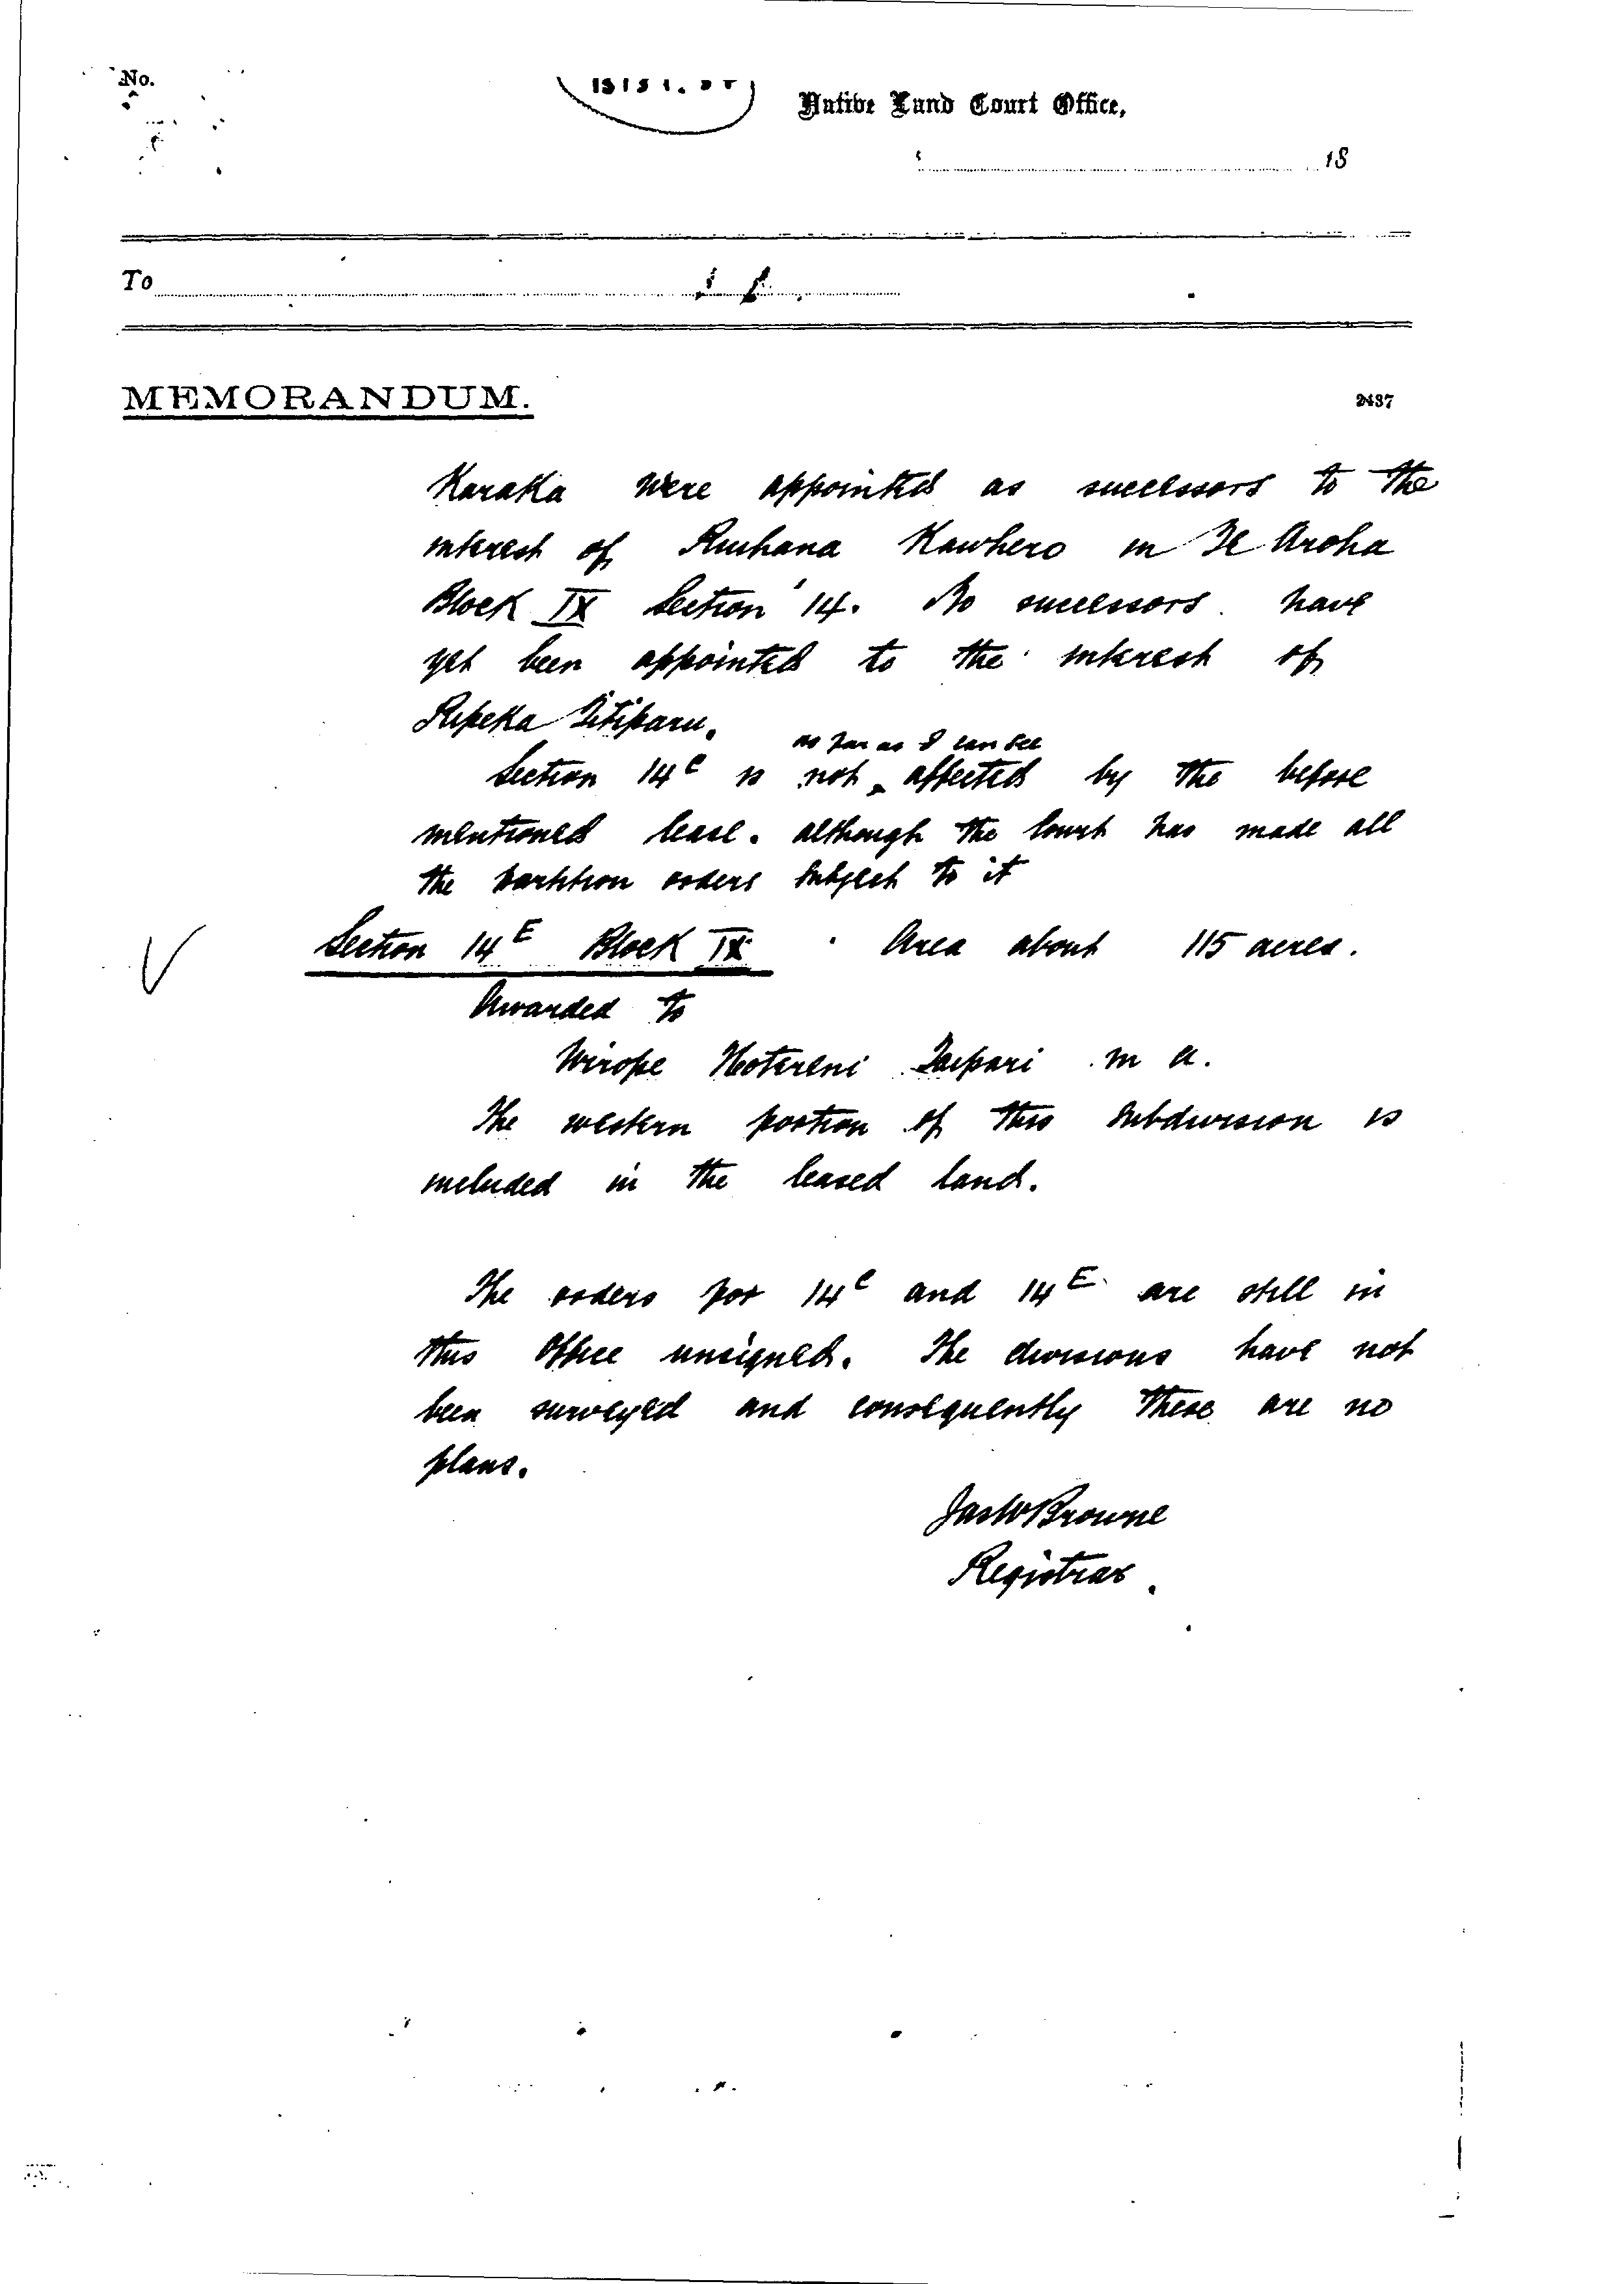 No.
Native Land Court Office,
18
To
MEMORANDUM.
2437
Karaka were appointed as successors to the
interest of Ruihana Kawhero in Te Aroha
Block IX Section 14. No successors have
yet been appointed to the interest of
Ripeka Titipari.
as far as I can see
Section 14C is not affected by the before
mentioned lease. although the Court has made all
the partition orders subject to it
Section 14E Block IX Area about 115 acres.
Awarded to
Wirope Hotereni Taipari m a.
The western portion of this subdivision is
included in the leased land.
The orders for 14C and 14E are still in
this Office unsigned. The divisions have not
been surveyed and consequently there are no
plans.
Jas W Browne
Registrar.